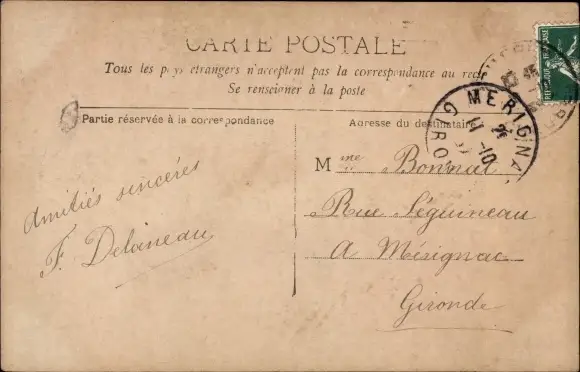 CARTE POSTALE
Tous les pays étrangers n'acceptent pas la correspondance au rec
Se renseigner à la poste
Partie réservée à la correspondance
Adresse du destinataire
MERIGNA
GIRO
11-10
Amitiés sincéres
F. Delaineau
Mme Bonnal
Rue Séguineau
A Mérignac
Gironde